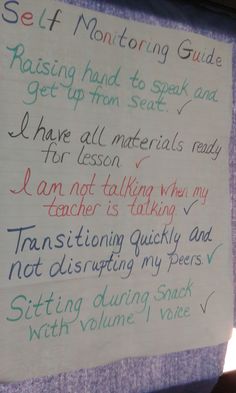 Self Monitoring Guide
Raising hand to speak and
get up from seat. ✓
I have all materials ready
for lesson ✓
I am not talking when my
teacher is talking. ✓
Transitioning quickly and
not disrupting my peers. ✓
Sitting during Snack ✓
with volume 1 voice